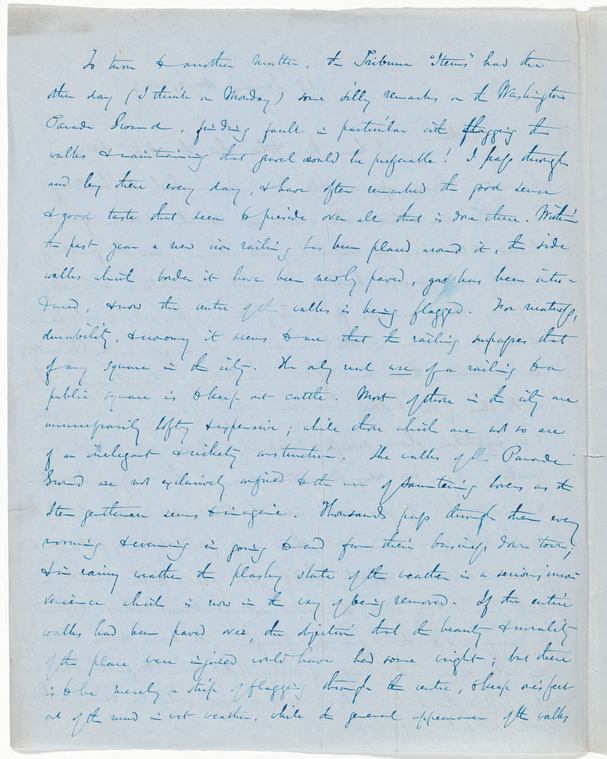 To turn to another matter, the Tribune "Items" had the
other day (I think on Monday) some silly remarks on the Washington
Parade Ground, finding fault in particular with flagging the
walks & maintaining that gravel would be preferable! I pass through
and by there every day, & have often remarked the good sense
& good taste that seem to preside over all that is done there. Within
the past year a new iron railing has been placed around it, the side
walks which border it have been newly paved, gas has been intro-
duced, & now the centre of the walks is being flagged. For neatness,
durability, & economy it seems to me that the railing surpasses that
of any square in the city. The only real use of a railing to a
public square is to keep out cattle. Most of those in the city are
unnecessarily lofty & expensive; while those which are not so are
of an inelegant & rickety construction. The walks of the Parade
Ground are not exclusively confined to the use of sauntering lovers as the
Item gentleman seems to imagine. Thousands pass through them every
morning & evening in going to and from their business down town;
& in rainy weather the plashy state of the weather is a serious incon-
venience which is now in the way of being removed. If the entire
walks had been paved over, the objection that the beauty & morality
of the place were injured would have had some weight; but there
is to be merely a strip of flagging through the centre, to keep one's feet
out of the mud in wet weather, while the general appearance of the walks